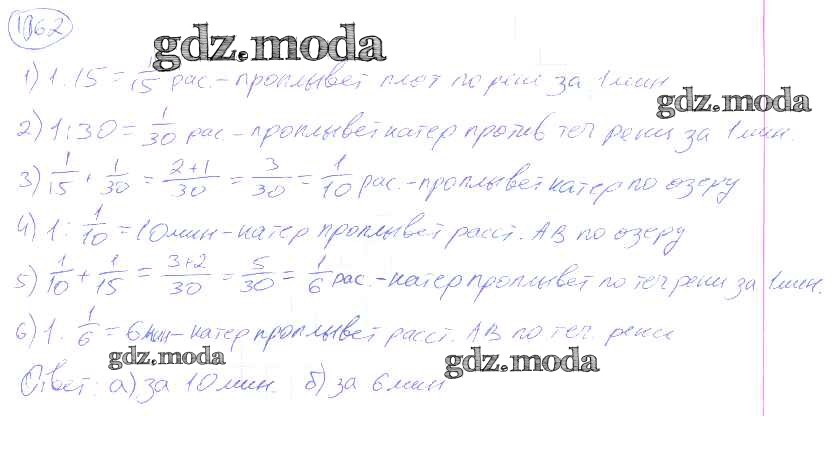 1062
gdz.moda
1) 1:15 = 1/15 рас. - проплывет плот по реки за 1 мин
gdz.moda
2) 1:30 = 1/30 рас - проплывет катер против теч реки за 1 мин.
3) 1/15 + 1/30 = 2+1/30 = 3/30 = 1/10 рас. - проплывет катер по озеру
4) 1: 1/10 = 10 мин - катер проплывет расст. АВ по озеру
5) 1/10 + 1/15 = 3+2/30 = 5/30 = 1/6 рас. - катер проплывет по теч реки за 1 мин.
6) 1: 1/6 = 6 мин - катер проплывет расст. АВ по теч. реки
gdz.moda gdz.moda
Ответ: а) за 10 мин. б) за 6 мин